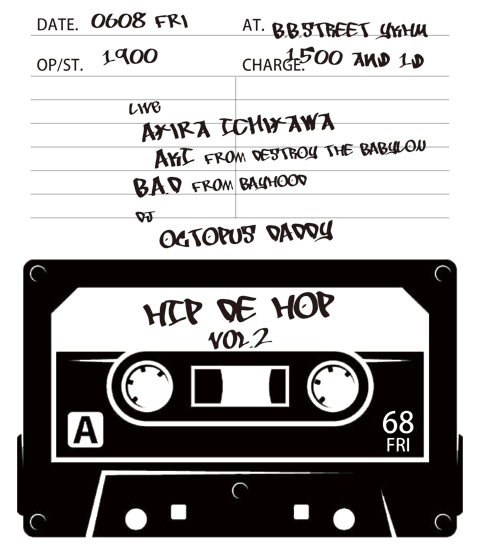 DATE. 0608 FRI
AT. B.B.STREET YKHM
OP/ST. 1900
CHARGE. 1500 AND 1D
LIVE
AKIRA ICHIKAWA
AKI FROM DESTROY THE BABYLON
B.A.D FROM BAYHOOD
DJ
OCTOPUS DADDY
HIP DE HOP
VOL.2
A
68
FRI